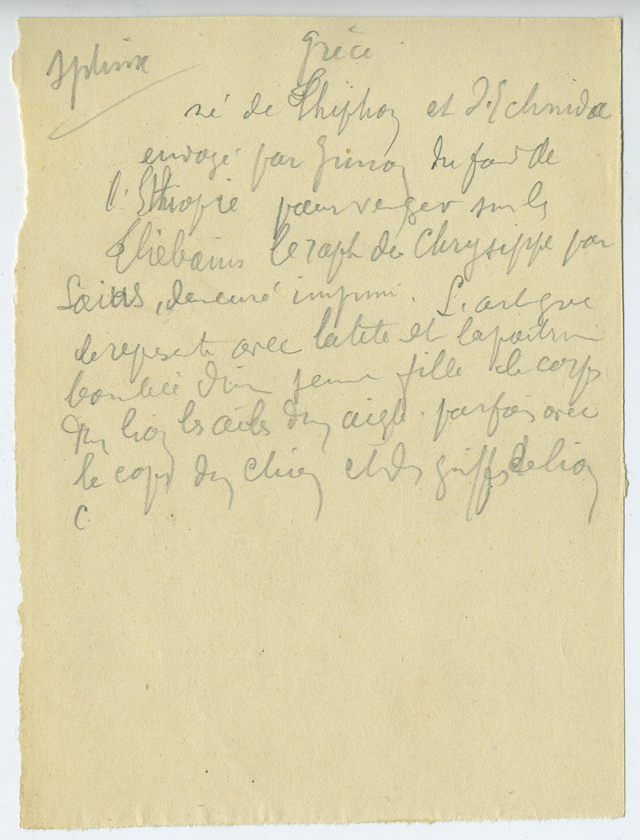 Sphinx
Grèce
né de Thiphon et d'Echnidae
envoyé par Junon du fond de
l'Ethiopie pour venger sur les
Thébains le rapt de Chrysippe par
Laius, demeuré impuni. L'art grec
le représente avec la tête et la poitrine
bombée d'une jeune fille le corps
d'un lion les ailes d'un aigle. parfois avec
le corps d'un chien et des griffes de lion
C